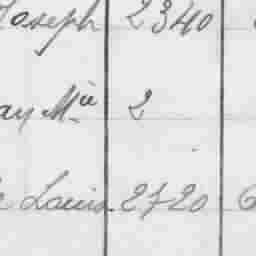 Joseph 2340
ay Mie 2
e Louis 2720